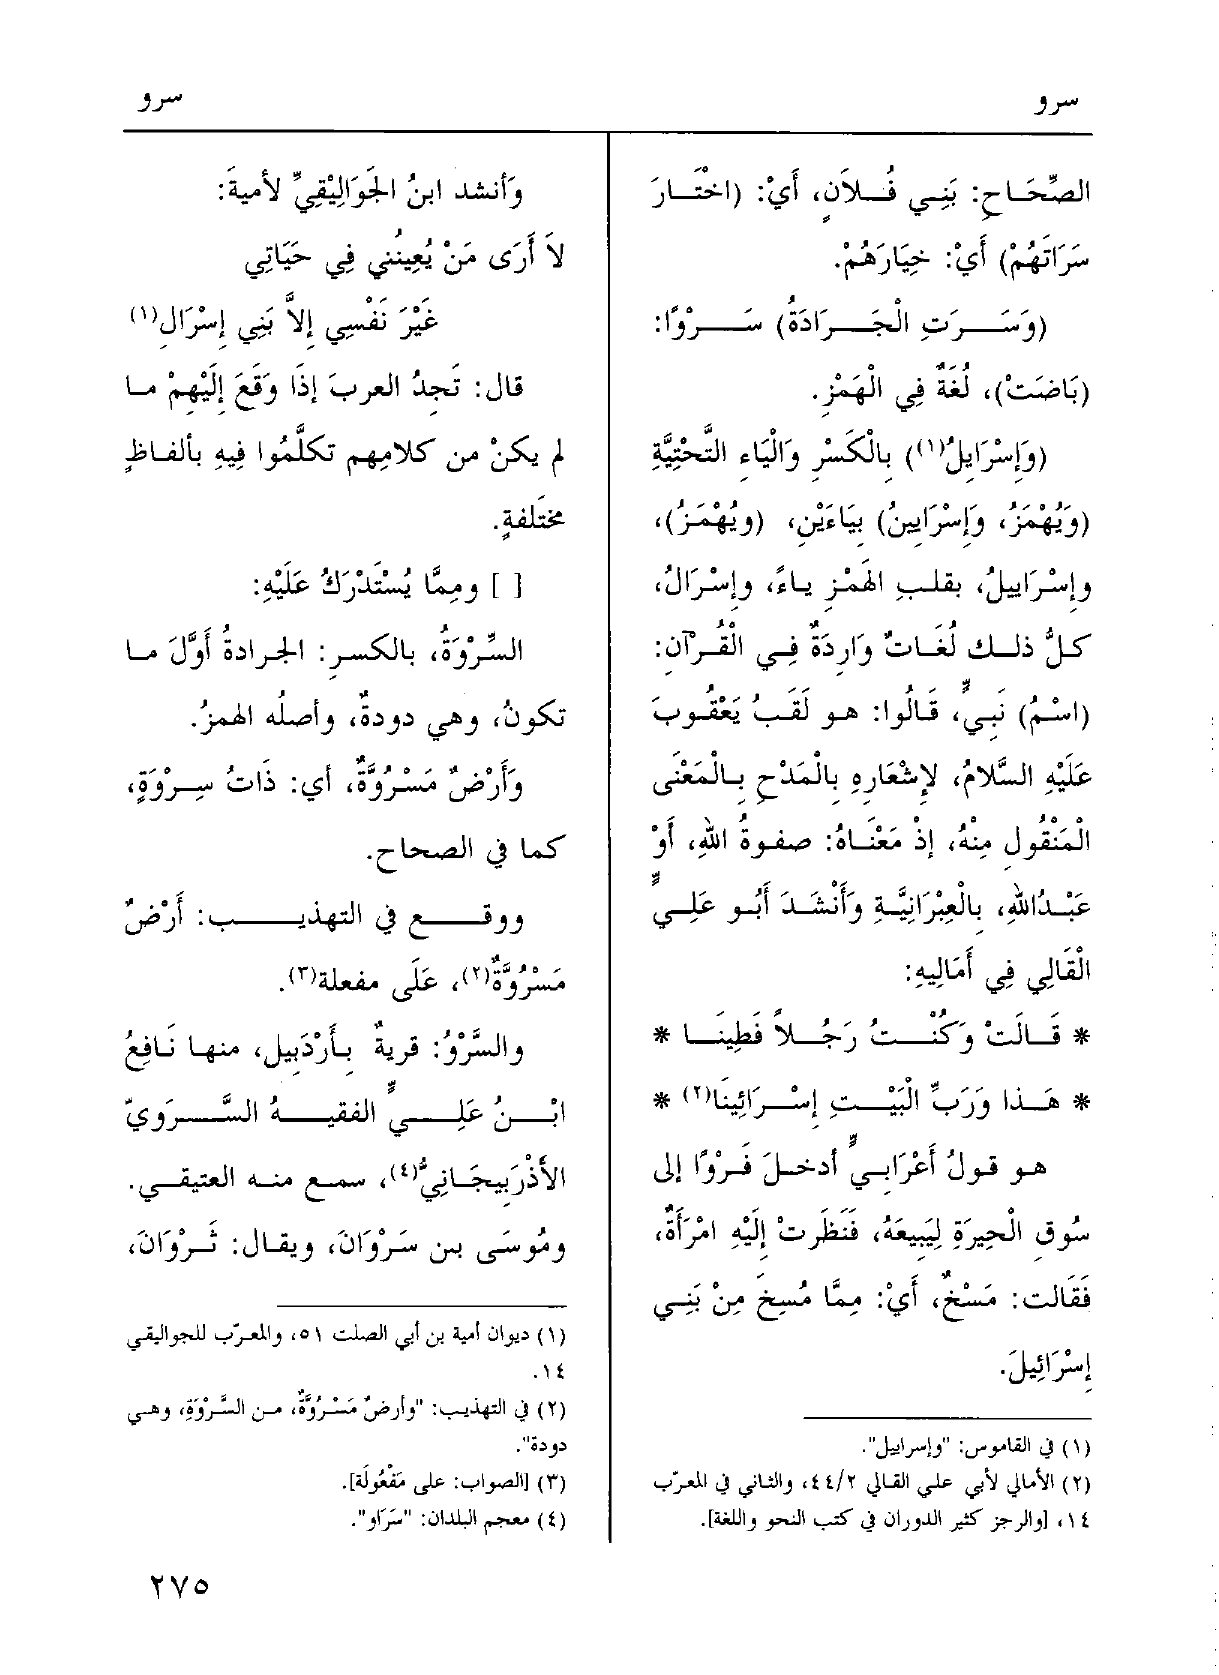 سرو
سرو
الصِّحَاحِ: بَنِي فُلاَنٍ، أَيْ: (اخْتَارَ
سَرَاتَهُمْ) أَيْ: خِيَارَهُمْ.
(وَسَرَتِ الْجَرَادَةُ) سَرْوًا:
(بَاضَتْ)، لُغَةٌ فِي الْهَمْزِ.
(وَإِسْرَايِلُ(١)) بِالْكَسْرِ وَالْيَاءِ التَّحْتِيَّةِ
(وَيُهْمَزُ، وَإِسْرَايِينُ) بِيَاءَيْنِ، (ويُهْمَزُ)،
وإِسْرَايِيلُ، بقلبِ الهَمْزِ ياءً، وإِسْرَالُ،
كلُّ ذلك لُغَاتٌ وَارِدَةٌ فِي الْقُرآنِ:
(اسْمُ) نَبِيٍّ، قَالُوا: هو لَقَبُ يَعْقُوبَ
عَلَيْهِ السَّلامُ، لإِشْعَارِهِ بِالْمَدْحِ بِالْمَعْنَى
الْمَنْقُولِ مِنْهُ، إِذْ مَعْنَاهُ: صفوةُ اللهِ، أَوْ
عَبْدُاللهِ، بِالْعِبْرَانِيَّةِ وَأَنْشَدَ أَبُو عَلِيٍّ
الْقَالِي فِي أَمَالِيهِ:
* قَالَتْ وَكُنْتُ رَجُلاً فَطِينَا *
* هَذا وَرَبِّ الْبَيْتِ إِسْرَائِينَا(٢) *
هو قولُ أَعْرَابِيٍّ أدخلَ قَرْوًا إلى
سُوقِ الْحِيرَةِ لِيَبِيعَهُ، فَنَظَرتْ إِلَيْهِ امْرَأَةٌ،
فَقَالت: مَسْخٌ، أَيْ: مِمَّا مُسِخَ مِنْ بَنِي
إِسْرَائِيلَ.
(١) في القاموس: "وإسراييل".
(٢) الأمالي لأبي علي القالي ٤٤/٢، والثاني في المعرّب
١٤، [والرجز كثير الدوران في كتب النحو واللغة].
وَأنشد ابنُ الجَوَالِيْقِيِّ لأميةَ:
لاَ أَرَى مَنْ يُعِينُنِي فِي حَيَاتِي
غَيْرَ نَفْسِي إِلاَّ بَنِي إِسْرَالِ(١)
قال: تَجِدُ العربَ إذَا وَقَعَ إلَيْهِمْ ما
لم يكنْ من كلامِهم تكلَّمُوا فِيهِ بألفاظٍ
مختَلفةٍ.
[ ] ومِمَّا يُسْتَدْرَكُ عَلَيْهِ:
السِّرْوَةُ، بالكسرِ: الجرادةُ أوَّلَ ما
تكونُ، وهي دودةٌ، وأصلُه الهمزُ.
وَأَرْضٌ مَسْرُوَّةٌ، أي: ذَاتُ سِرْوَةٍ،
كما في الصحاح.
ووقع في التهذيب: أَرْضٌ
مَسْرُوَّةٌ(٢)، عَلَى مفعلة(٣).
والسَّرْوُ: قريةٌ بأَرْدَبِيل، منها نَافِعُ
ابْنُ عَلِيٍّ الفقيهُ السَّرَوِيّ
الأَذْرَبِيجَانِيُّ(٤)، سمع منه العتيقي.
ومُوسَى بن سَرْوَانَ، ويقال: ثَرْوَانَ،
(١) ديوان أمية بن أبي الصلت ٥١، والمعرّب للجواليقي
١٤.
(٢) في التهذيب: "وأرضٌ مَسْرُوَّةٌ، من السَّرْوَةِ، وهي
دودة".
(٣) [الصواب: على مَفْعُولَة].
(٤) معجم البلدان: "سَرَاو".
٢٧٥